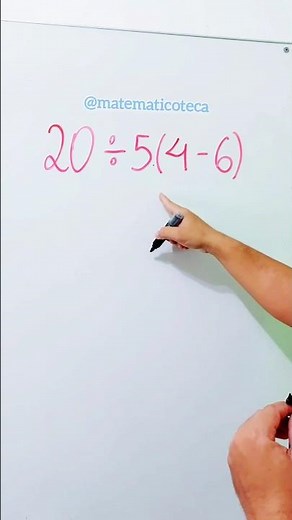 @matematicoteca
20÷5.(4-6)